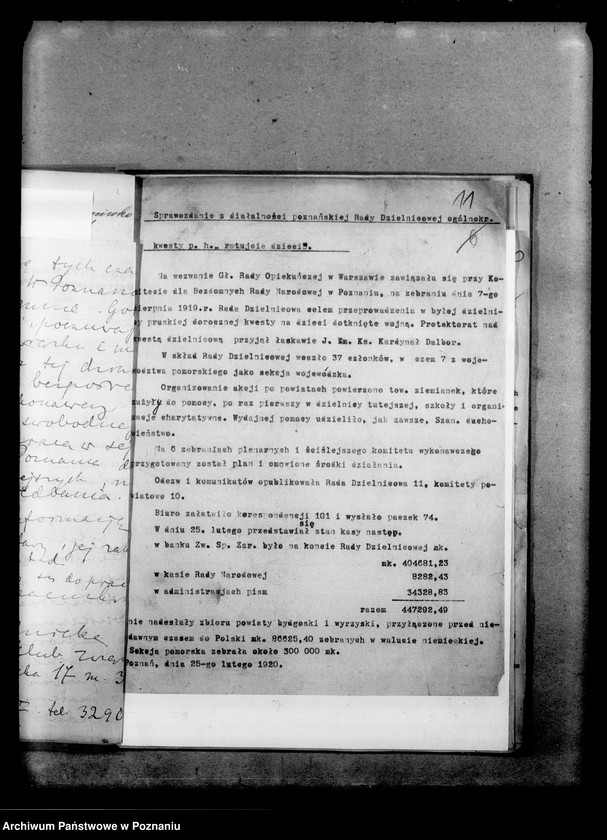 11
6
Sprawozdanie z działalności poznańskiej Rady Dzielnicowej ogólnokr.
kwesty p. h. „ ratujcie dzieci".
Na wezwanie Gł. Rady Opiekuńczej w Warszawie zawiązała się przy Ko-
mitecie dla Bezdomnych Rady Narodowej w Poznaniu, na zebraniu dnia 7-go
sierpnia 1919.r. Rada Dzielnicowa celem przeprowadzenia w byłej dzielni-
cy pruskiej dorocznej kwesty na dzieci dotknięte wojną. Protektorat nad
kwestą dzielnicową przyjął łaskawie J. Em. Ks. Kardynał Dalbor.
W skład Rady Dzielnicowej weszło 37 członków, w czem 7 z woje-
wództwa pomorskiego jako sekcja wojewódzka.
Organizowanie akcji po powiatach powierzono tow. ziemianek, które
użyły do pomocy, po raz pierwszy w dzielnicy tutejszej, szkoły i organi-
zacje charytatywne. Wydajnej pomocy udzieliło, jak zawsze, Szan. ducho-
wieństwo.
Na 6 zebraniach plenarnych i ściślejszego komitetu wykonawczego
przygotowany został plan i omówione środki działania.
Odezw i komunikatów opublikowała Rada Dzielnicowa 11, komitety po-
wiatowe 10.
Biuro załatwiło korespondencji 101 i wysłało paczek 74.
W dniu 25. lutego przedstawiał się stan kasy następ.
w banku Zw. Sp. Zar. było na koncie Rady Dzielnicowej mk.
mk. 404681,23
w kasie Rady Narodowej 8282,43
w administracjach pism 34328,83
razem 447292,49
nie nadesłały zbioru powiaty bydgoski i wyrzyski, przyłączone przed nie-
dawnym czasem do Polski mk. 86625,40 zebranych w walucie niemieckiej.
Sekcja pomorska zebrała około 300 000 mk.
Poznań, dnia 25-go lutego 1920.
tych
swobodne
17 m. 3
tel. 3290
Archiwum Państwowe w Poznaniu